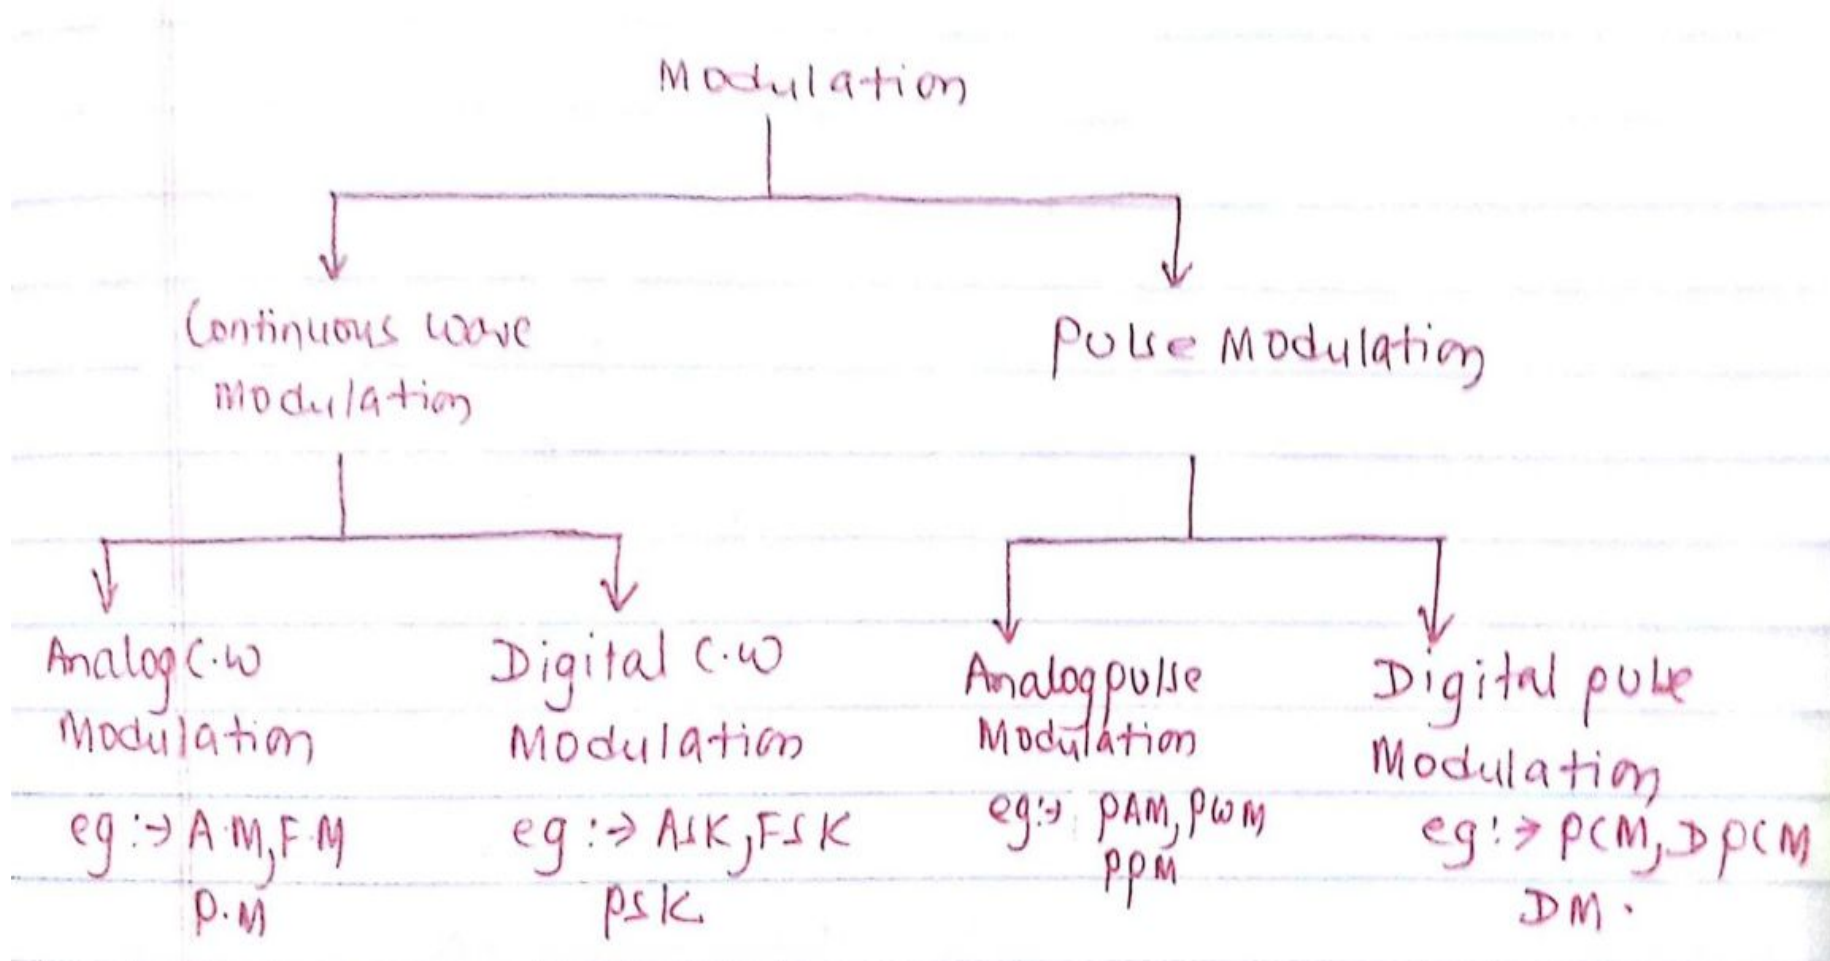 Modulation
Continuous wave
Modulation
Pulse Modulation
Analog C.W
Modulation
eg :→ A.M, F.M
P.M
Digital C.W
Modulation
eg :→ ASK, FSK
PSK
Analog pulse
Modulation
eg :→ PAM, PWM
PPM
Digital pulse
Modulation
eg :→ PCM, DPCM
DM.